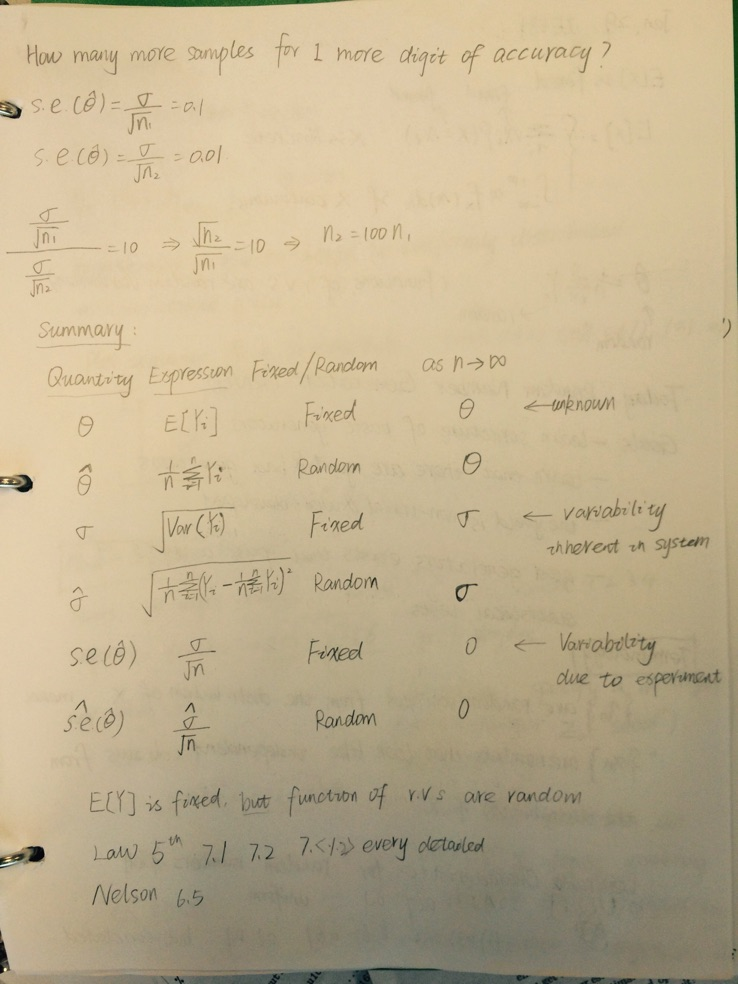 How many more samples for 1 more digit of accuracy?
s.e.(θ̂) = σ/√n₁ = 0.1
s.e.(θ̂) = σ/√n₂ = 0.01
(σ/√n₁)/(σ/√n₂) = 10 ⇒ √n₂/√n₁ = 10 ⇒ n₂ = 100 n₁
Summary:
Quantity Expression Fixed/Random as n→∞
θ E[Yi] Fixed θ ← unknown
θ̂ 1/n Σⁿᵢ₌₁ Yi Random θ
σ √Var(Yi) Fixed σ ← variability
inherent in system
σ̂ √(1/n Σⁿᵢ₌₁(Yi - 1/n Σⁿᵢ₌₁ Yi)²) Random σ
s.e(θ̂) σ/√n Fixed 0 ← Variability
due to experiment
ŝ.e(θ̂) σ̂/√n Random 0
E[Y] is fixed, but function of r.v.s are random
Law 5th 7.1 7.2 7.<1.2> every detailed
Nelson 6.5